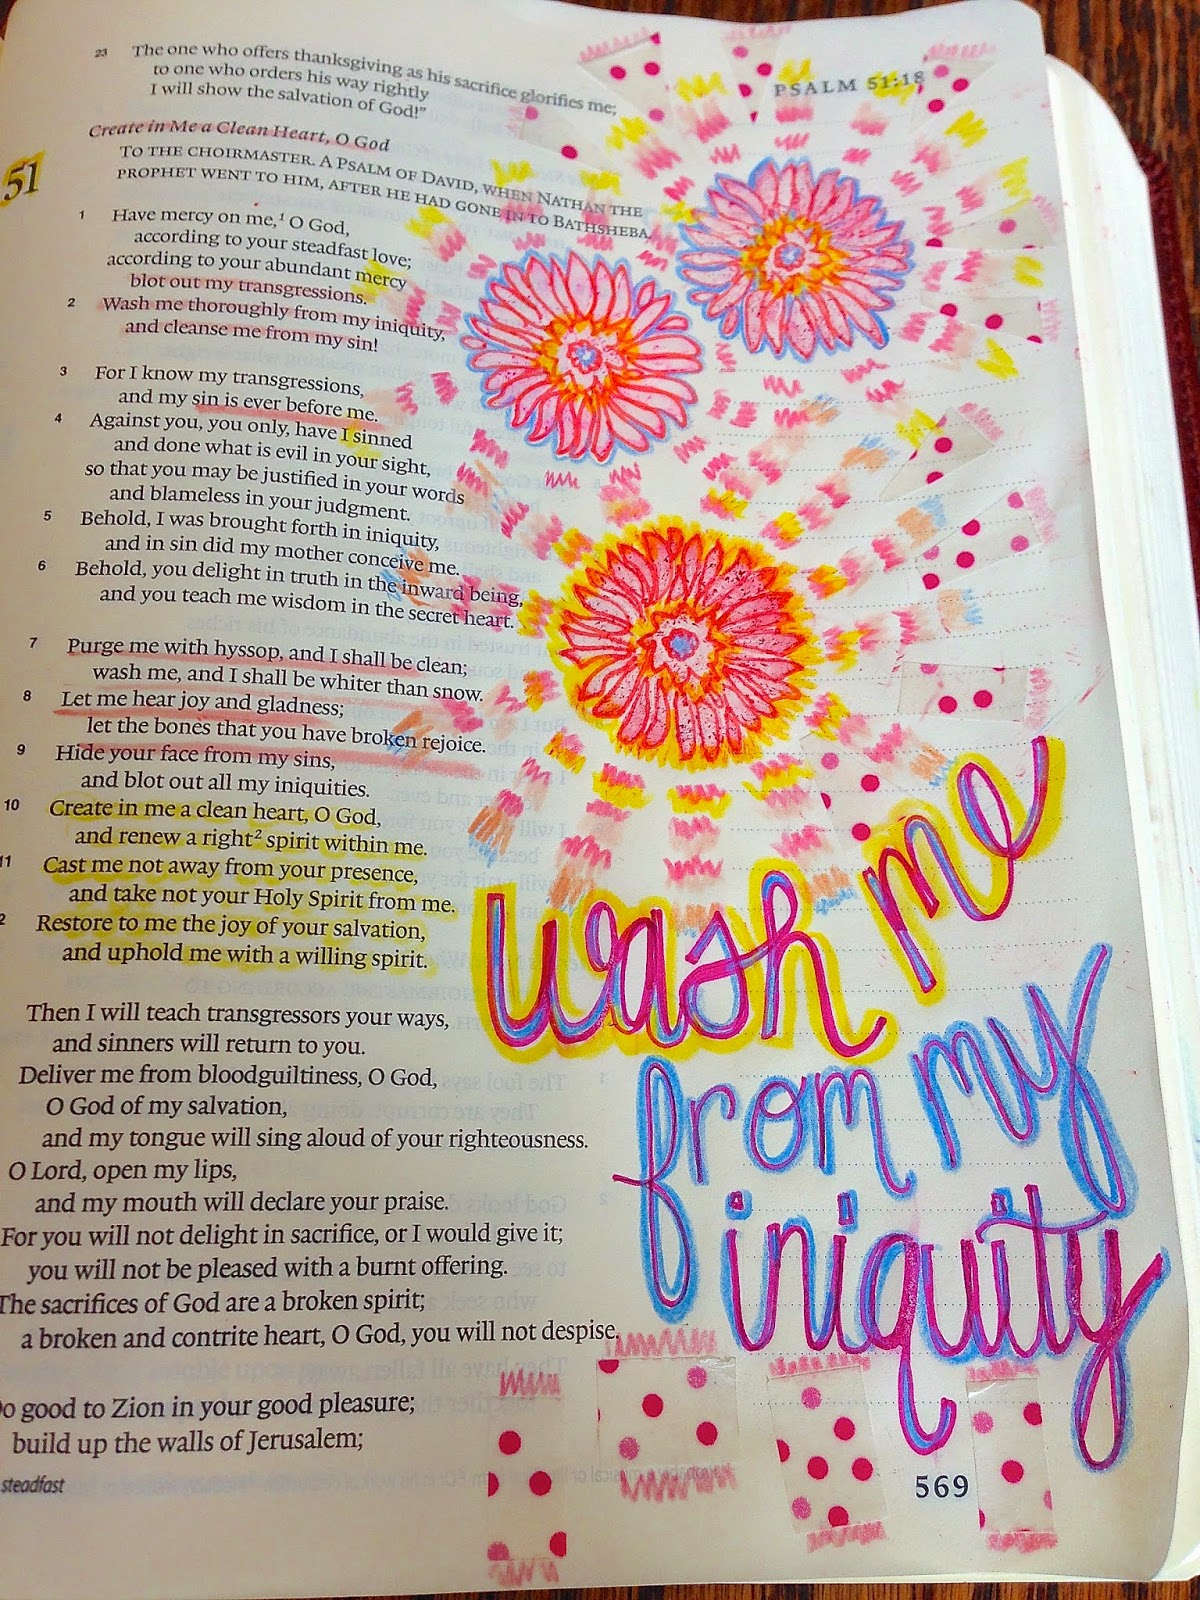 23 The one who offers thanksgiving as his sacrifice glorifies me;
to one who orders his way rightly
I will show the salvation of God!"
PSALM 51:18
Create in Me a Clean Heart, O God
51
TO THE CHOIRMASTER. A PSALM OF DAVID, WHEN NATHAN THE
PROPHET WENT TO HIM, AFTER HE HAD GONE IN TO BATHSHEBA.
1 Have mercy on me,¹ O God,
according to your steadfast love;
according to your abundant mercy
blot out my transgressions.
2 Wash me thoroughly from my iniquity,
and cleanse me from my sin!
3 For I know my transgressions,
and my sin is ever before me.
4 Against you, you only, have I sinned
and done what is evil in your sight,
so that you may be justified in your words
and blameless in your judgment.
5 Behold, I was brought forth in iniquity,
and in sin did my mother conceive me.
6 Behold, you delight in truth in the inward being,
and you teach me wisdom in the secret heart.
7 Purge me with hyssop, and I shall be clean;
wash me, and I shall be whiter than snow.
8 Let me hear joy and gladness;
let the bones that you have broken rejoice.
9 Hide your face from my sins,
and blot out all my iniquities.
10 Create in me a clean heart, O God,
and renew a right² spirit within me.
11 Cast me not away from your presence,
and take not your Holy Spirit from me.
2 Restore to me the joy of your salvation,
and uphold me with a willing spirit.
Then I will teach transgressors your ways,
and sinners will return to you.
Deliver me from bloodguiltiness, O God,
O God of my salvation,
and my tongue will sing aloud of your righteousness.
O Lord, open my lips,
and my mouth will declare your praise.
For you will not delight in sacrifice, or I would give it;
you will not be pleased with a burnt offering.
The sacrifices of God are a broken spirit;
a broken and contrite heart, O God, you will not despise.
o good to Zion in your good pleasure;
build up the walls of Jerusalem;
steadfast
wash me
from my
iniquity
569